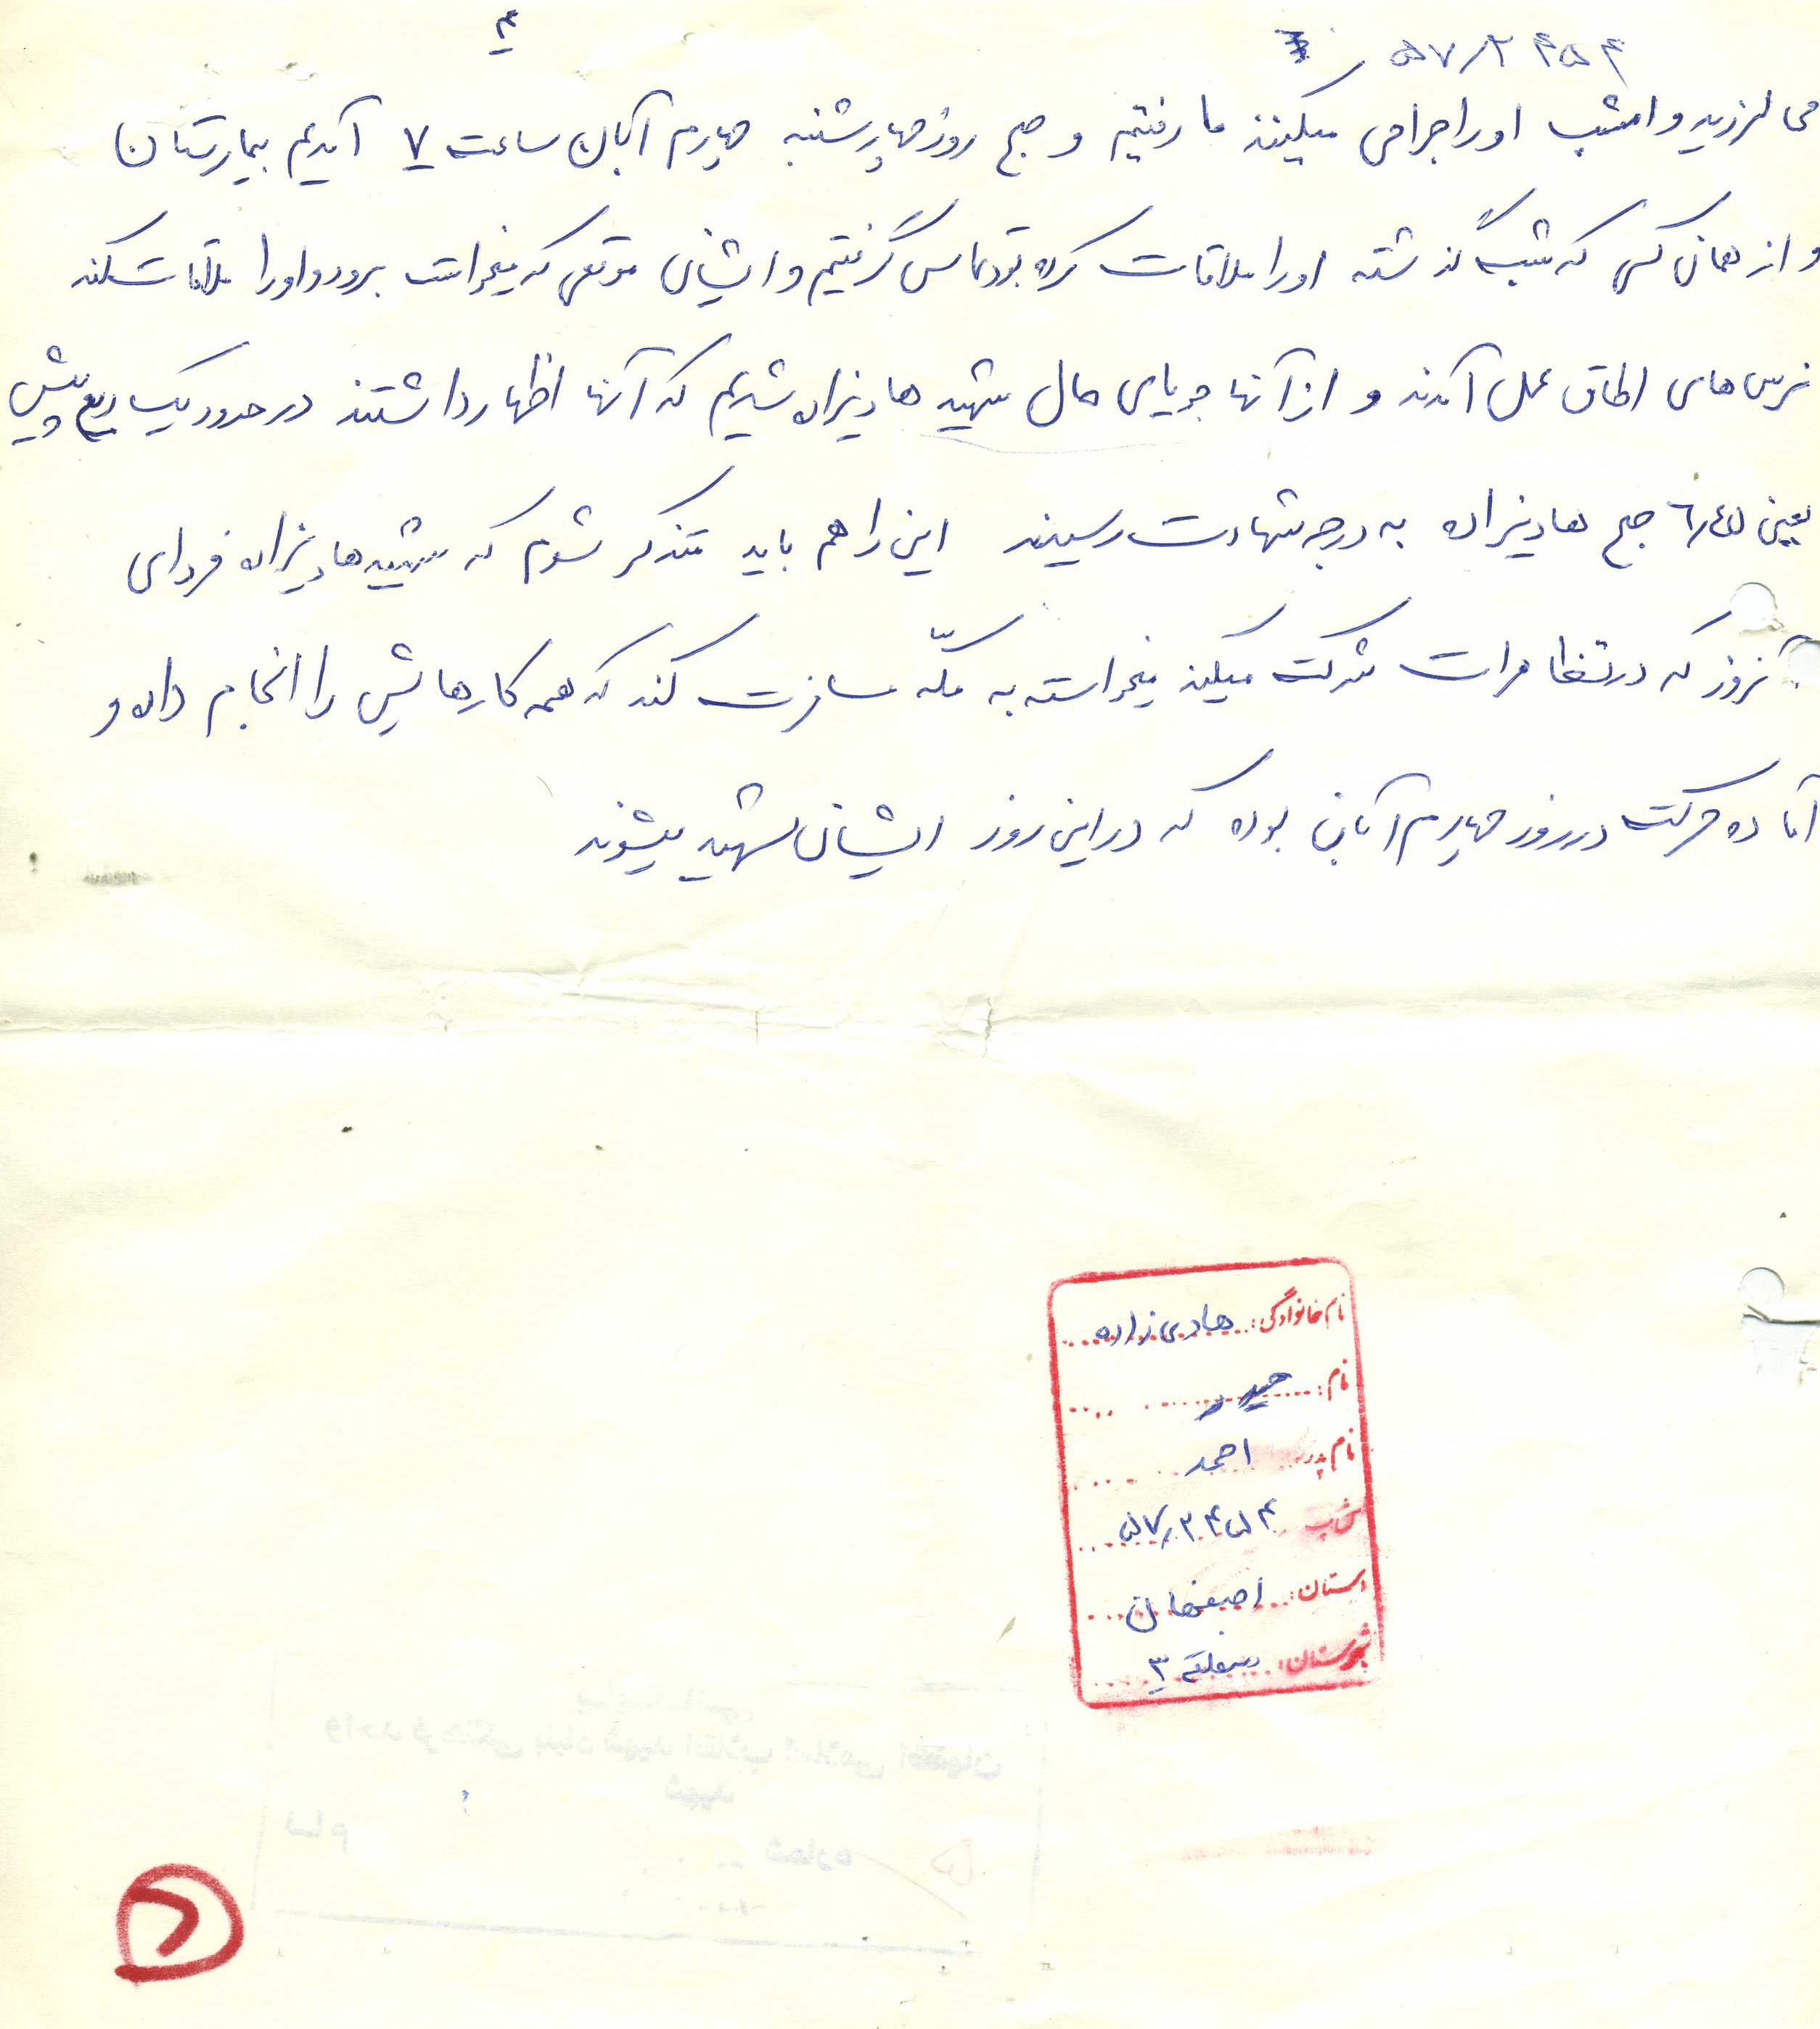 ۴
۵۷/۲۴۵۴
می لرزید و امشب او را جراحی میکنند ما رفتیم و صبح روز چهارشنبه چهارم آبان ساعت ۷ آمدیم بیمارستان
و از همان کسی که شب گذشته او را ملاقات کرده بود تماس گرفتیم و ایشان موقعی که میخواست برود و او را ملاقات کند
نرس های اطاق عمل آمدند و از آنها جویای حال شهید هادیزاده شدیم که آنها اظهار داشتند در حدود یک ربع پیش
یعنی ۶/۴۵ صبح هادیزاده به درجه شهادت رسیدند این را هم باید متذکر شوم که شهید هادیزاده فردای
آنروز که در تظاهرات شرکت میکند میخواسته به مکّه مسافرت کند که همه کارهایش را انجام داده و
آماده حرکت در روز چهارم آبان بوده که در این روز ایشان شهید میشوند
نام خانوادگی: هادی زاده
نام: حیدر
نام پدر: احمد
ش پ ۵۷/۲۴۵۴
استان: اصفهان
شهرستان: منطقه ۳